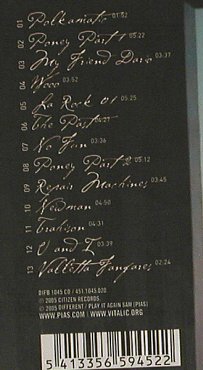 01 Polkamatic 01:52
02 Poney Part 1 05:22
03 My Friend Dario 03:37
04 Wooo 03:52
05 La Rock 01 05:25
06 The Past 04:27
07 No Fun 03:36
08 Poney Part 2 05:12
09 Repair Machines 03:45
10 Newman 04:50
11 Trahison 04:31
12 U and I 03:39
13 Valletta Fanfares 02:24
DIFB 1045 CD / 451.1045.020
℗ 2005 CITIZEN RECORDS
© 2005 DIFFERENT / PLAY IT AGAIN SAM [PIAS]
WWW.PIAS.COM | WWW.VITALIC.ORG
5 413356 594522